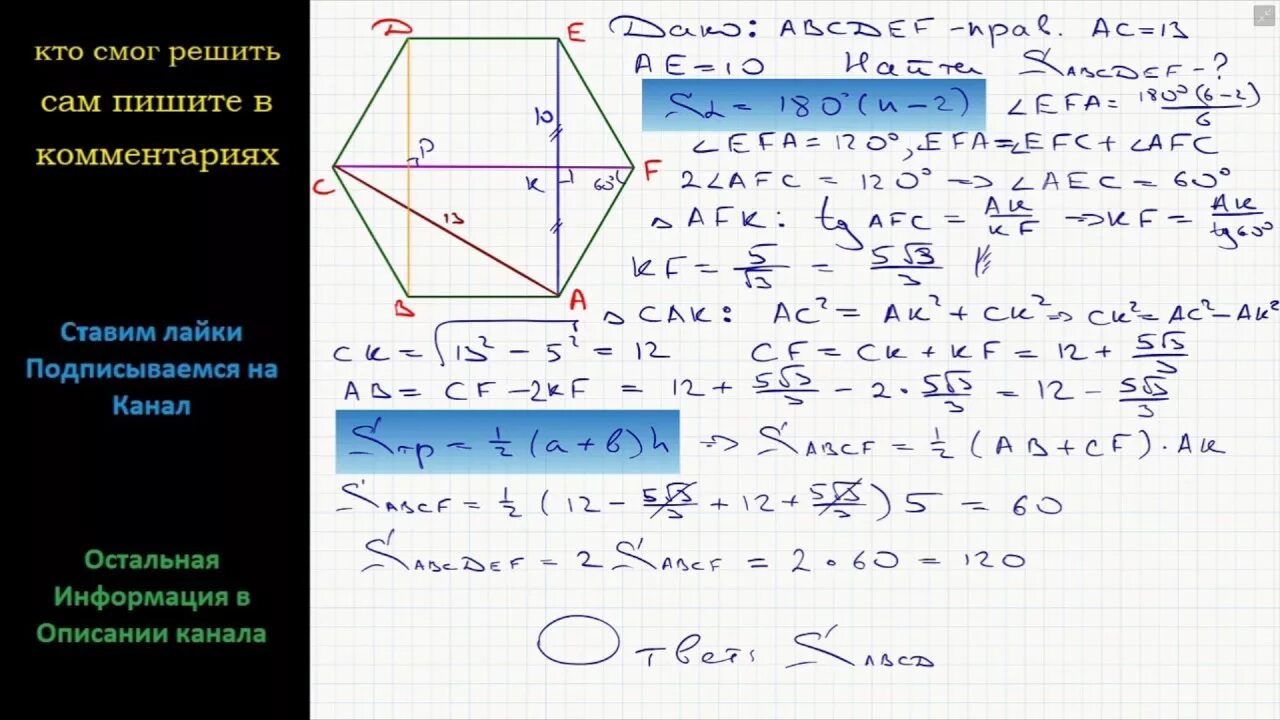 кто смог решить
сам пишите в
комментариях
Ставим лайки
Подписываемся на
Канал
Остальная
Информация в
Описании канала
D
E
10
P
K
60°
F
C
13
B
A
Дано: ABCDEF - прав. AC = 13
AE = 10 Найти S ABCDEF - ?
S∠ = 180°(n - 2) ∠EFA = 180°(6-2)/6
∠EFA = 120°, EFA = ∠EFC + ∠AFC
2∠AFC = 120° => ∠AEC = 60°
△AFK: tg AFC = AK/KF => KF = AK/tg60°
KF = 5/√3 = 5√3/3
△CAK: AC² = AK² + CK² => CK² = AC² - AK²
CK = √13² - 5² = 12 CF = CK + KF = 12 + 5√3/3
AB = CF - 2KF = 12 + 5√3/3 - 2 · 5√3/3 = 12 - 5√3/3
Sтр = 1/2 (a + b) h => S ABCF = 1/2 (AB + CF) · AK
S ABCF = 1/2 (12 - 5√3/3 + 12 + 5√3/3) 5 = 60
S ABCDEF = 2 S ABCF = 2 · 60 = 120
Ответ: S ABCD